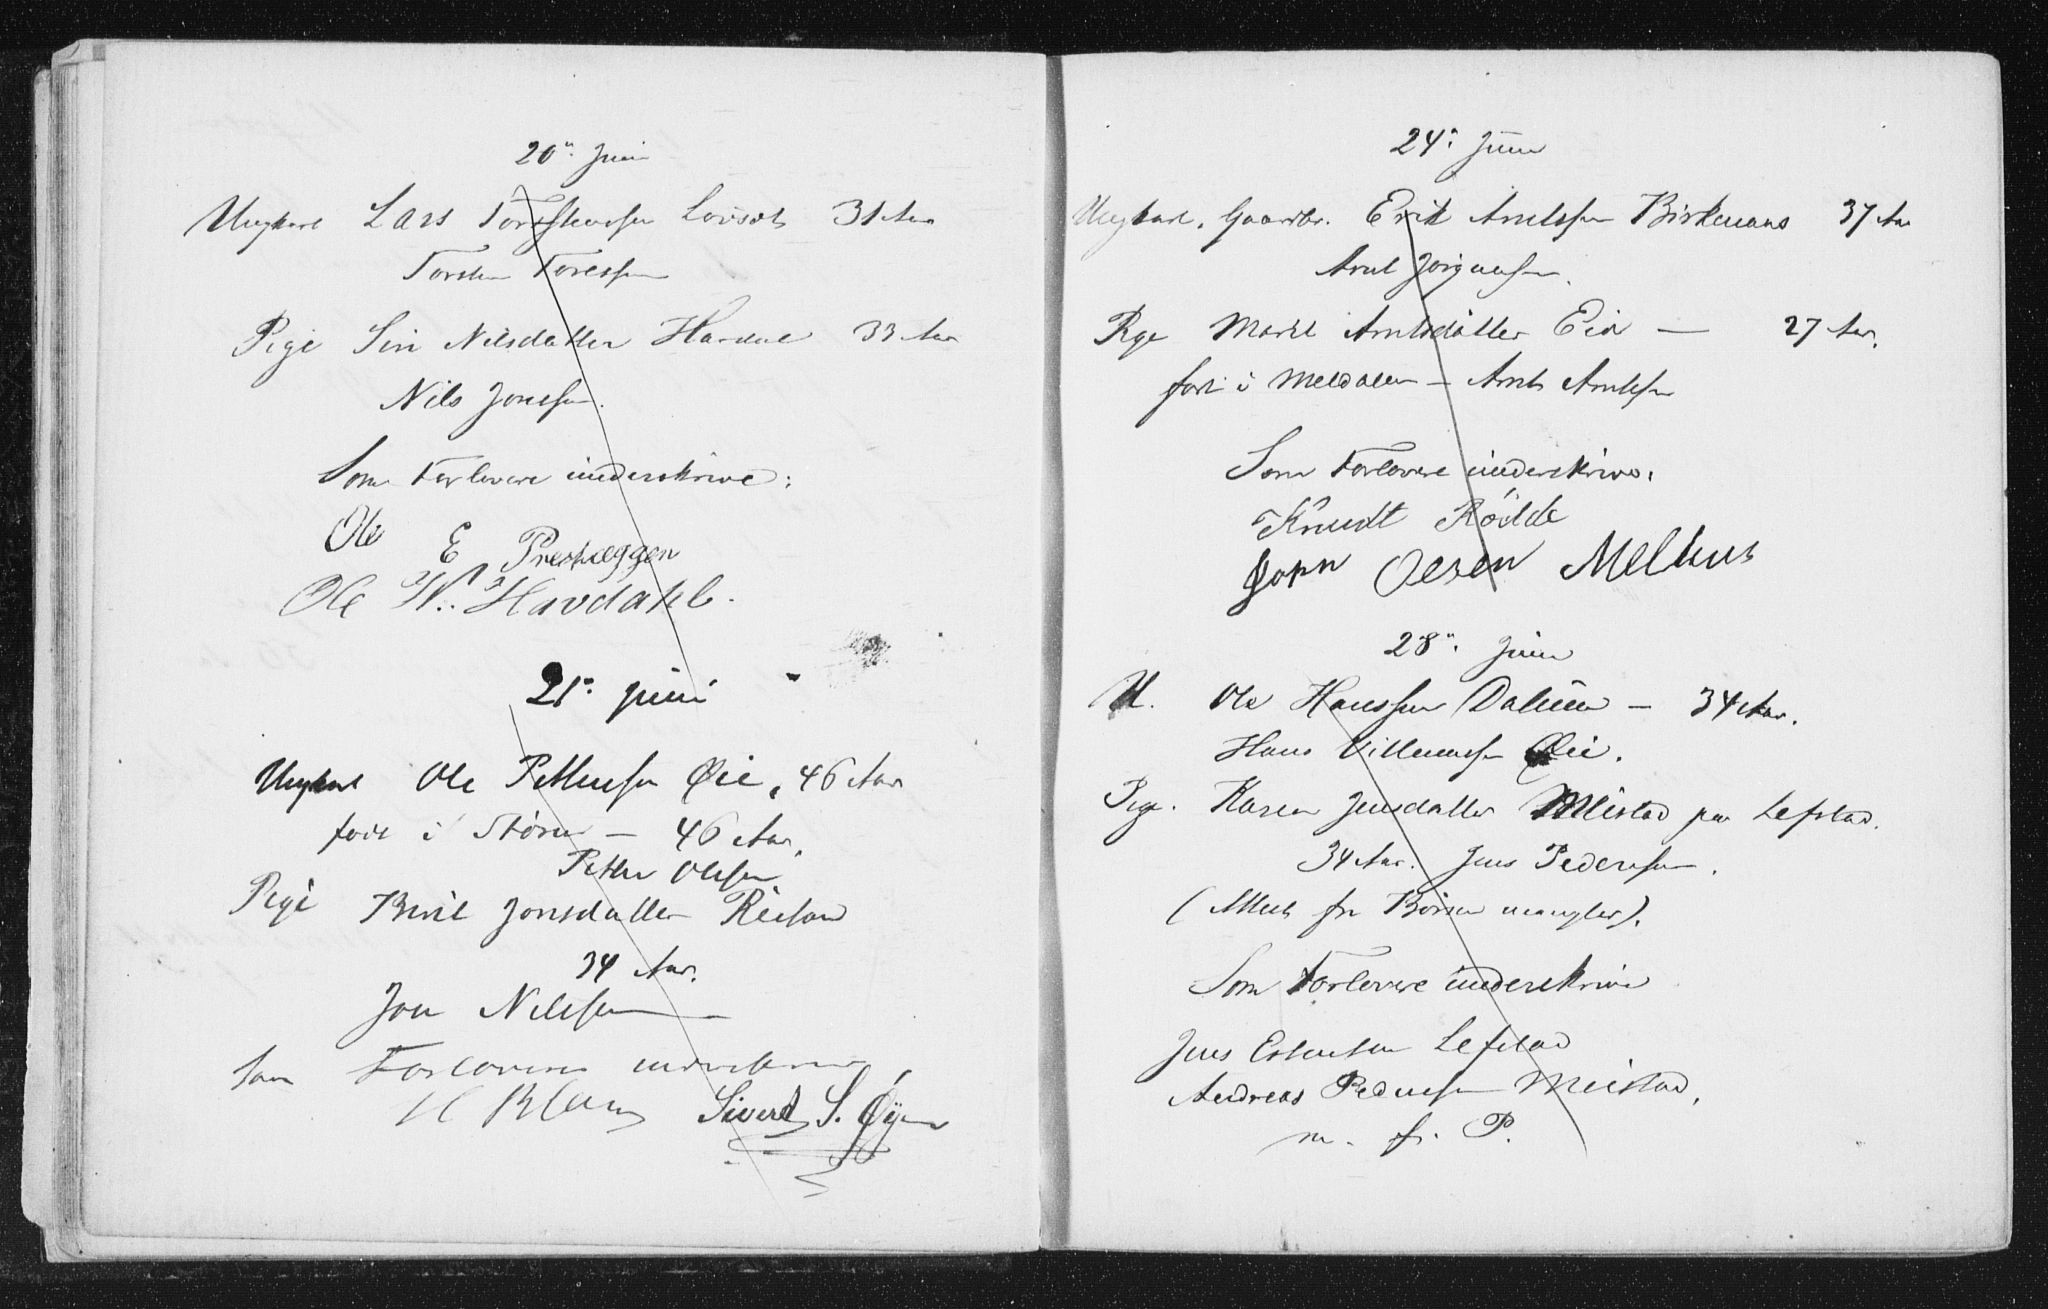 20de Juni
Ungkarl Lars Torstensen Losvol 31 Aar
Torsten Toressen
Pige Siri Nilsdatter Havdal 33 Aar
Nils Jonssen.
Som Forlovere underskrive:
Ole E Presthæggen
Ole N. Havdahl.
21de Juni
Ungkarl Ole Pettersen Øie, 46 Aar
født i Støren — 46 Aar.
Petter Olsen
Pige Berit Jonsdatter Reitan
34 Aar.
Jon Nilssen
Som Forlovere underskrive
Sivert S. Øyen
24de Juni
Ungkarl. Gaardbr. Erik Arntssen Birkenaas 37 Aar
Arnt Jørgensen.
Pige Marit Arntsdatter Eid — 27 Aar.
født i Meldalen — Arnt Arntsen
Som Forlovere underskrive.
Knudt Rødde
John Olsen Melhus
28de Juni
U. Ole Hanssen Dalum — 34 Aar.
Hans Villumsen Øie.
Pige. Karen Jensdatter Meistad paa Lefstad.
34 Aar. Jens Pedersen.
(Attest fra Børsen mangler).
Som Forlovere underskrive
Jens Estensen Lefstad
Andreas Pedersen Meistad.
m. f. P.